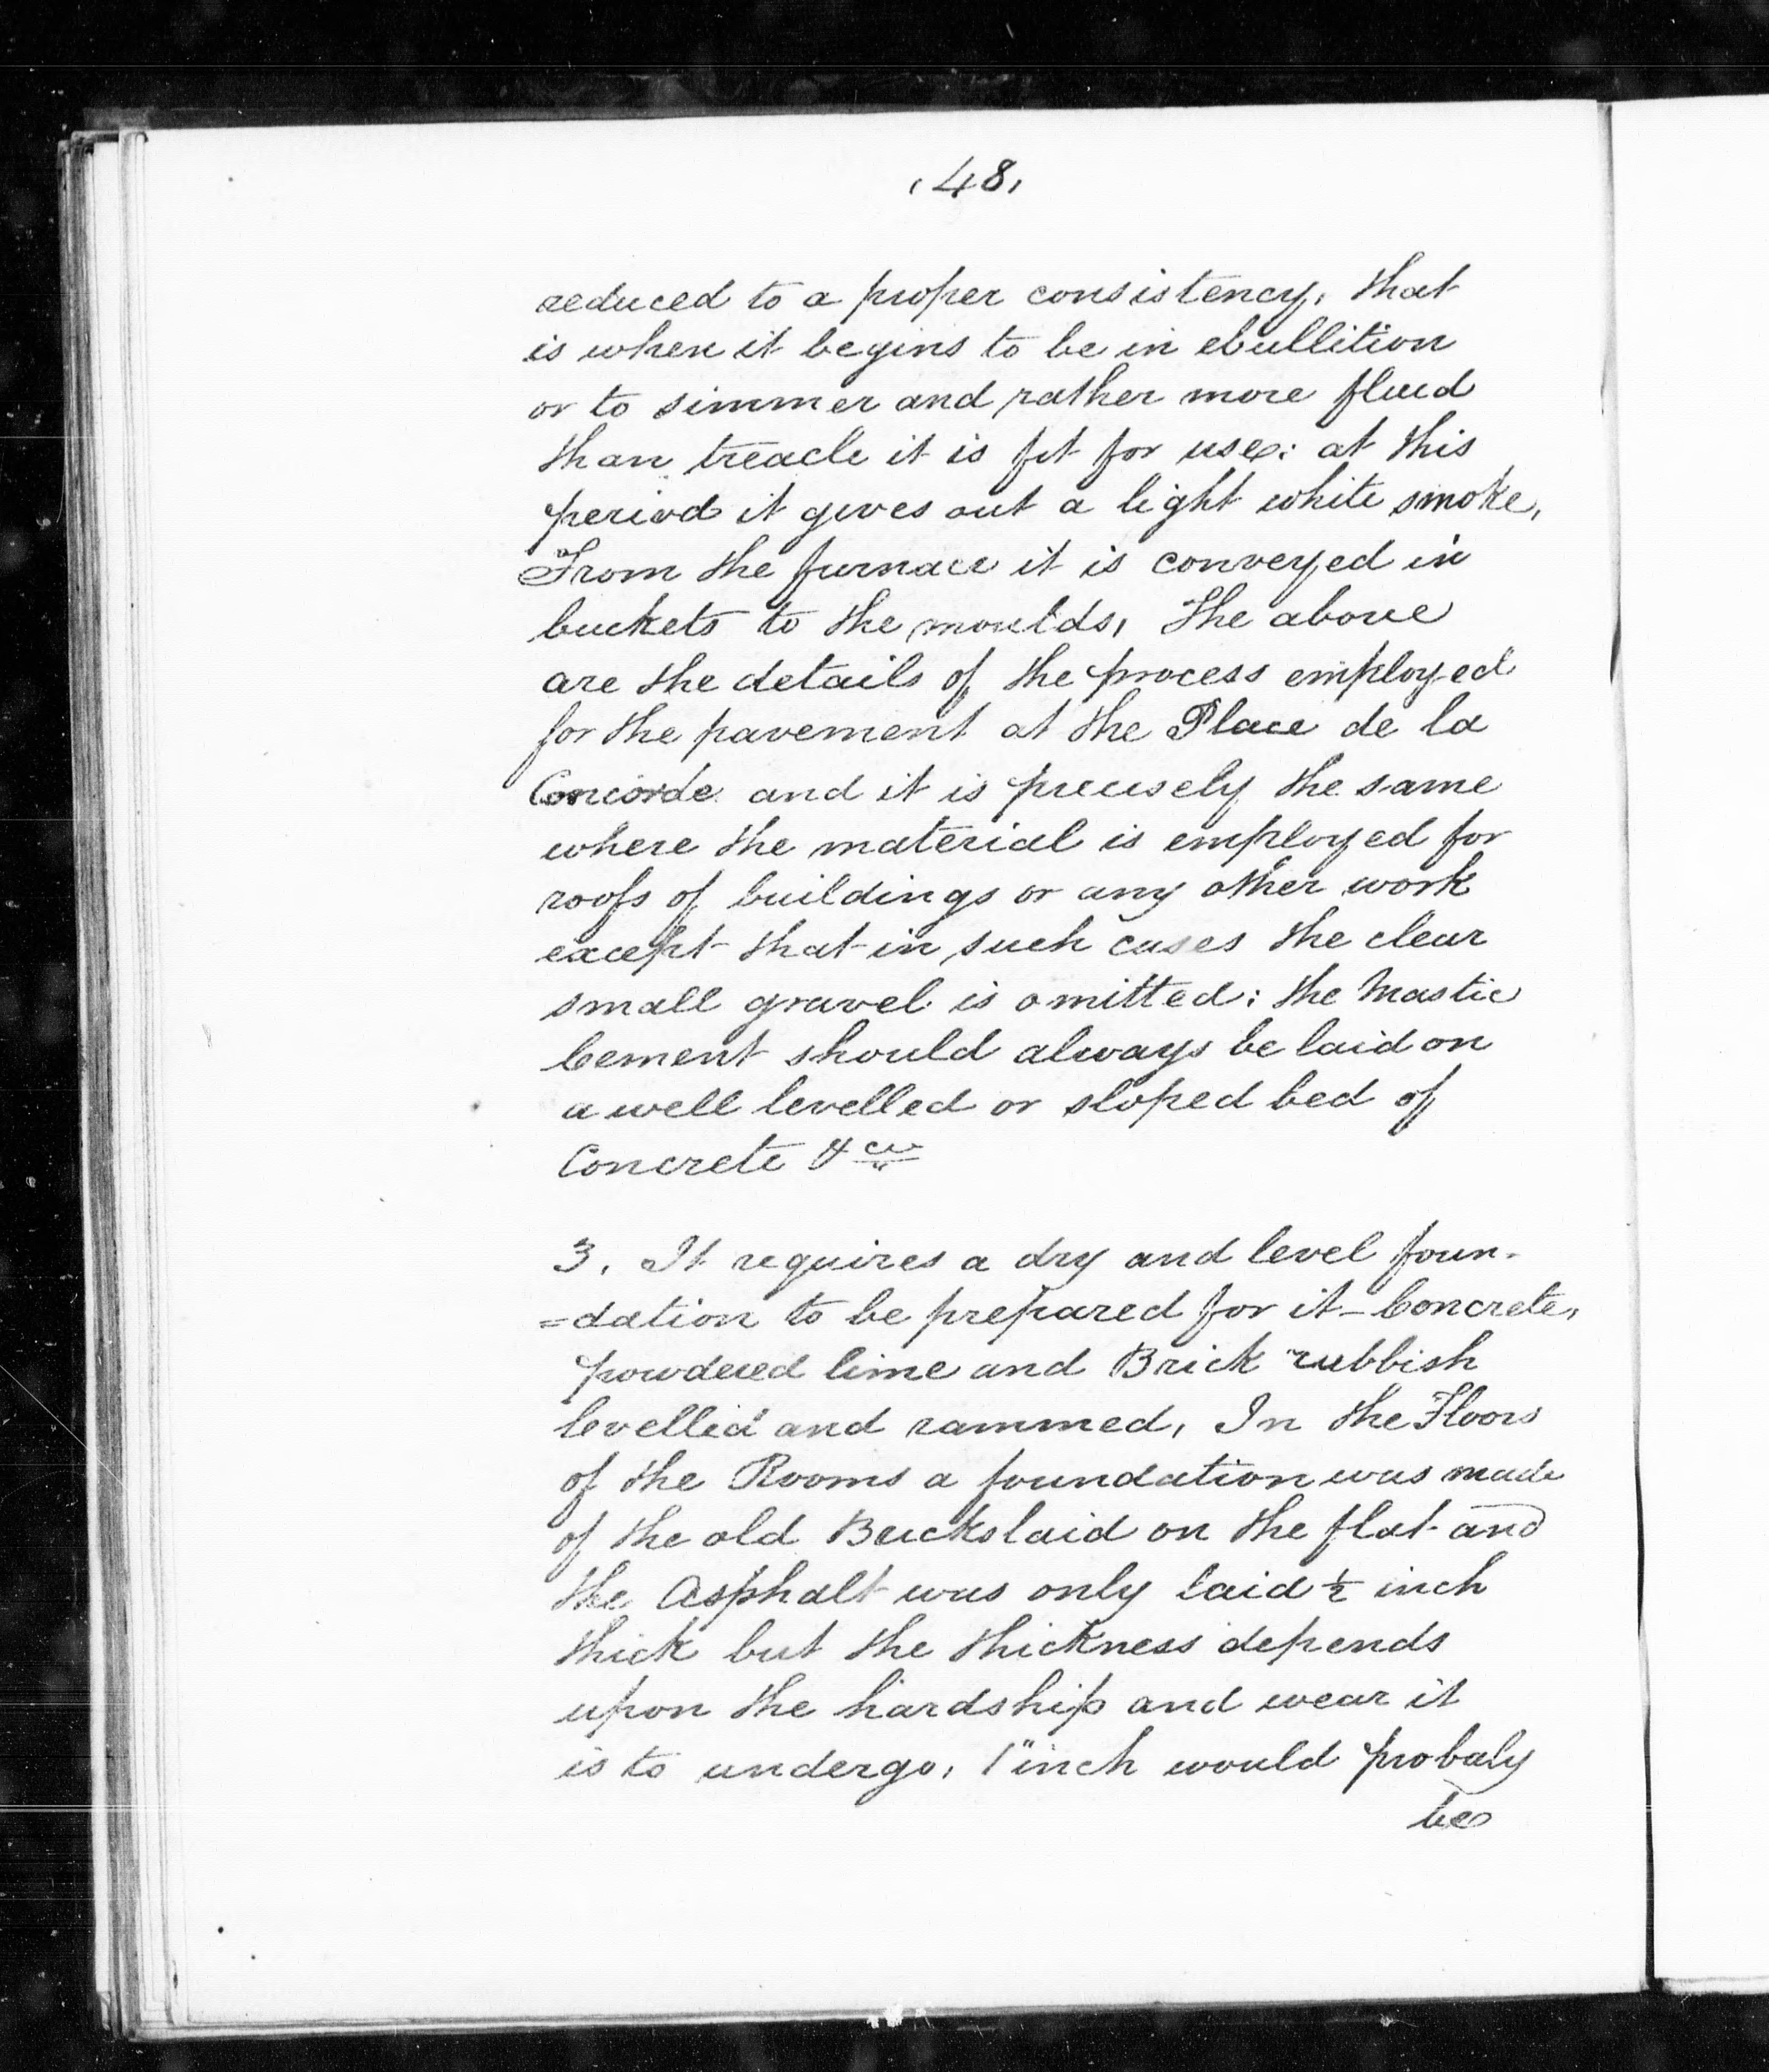 48,
reduced to a proper consistency, that
is when it begins to be in ebullition
or to simmer and rather more fluid
than treacle it is fit for use: at this
period it gives out a light white smoke,
From the furnace it is conveyed in
buckets to the moulds, The above
are the details of the process employed
for the pavement at the Place de la
Concorde and it is precisely the same
where the material is employed for
roofs of buildings or any other work
except that in such cases the clear
small gravel is omitted: the Mastic
Cement should always be laid on
a well levelled or sloped bed of
Concrete &ca
3. It requires a dry and level foun-
=dation to be prepared for it - Concrete,
powdered lime and Brick rubbish
levelled and rammed, In the Floors
of the Rooms a foundation was made
of the old Bricks laid on the flat and
the Asphalt was only laid ½ inch
thick but the thickness depends
upon the hardship and wear it
is to undergo, 1" inch would probaly
be